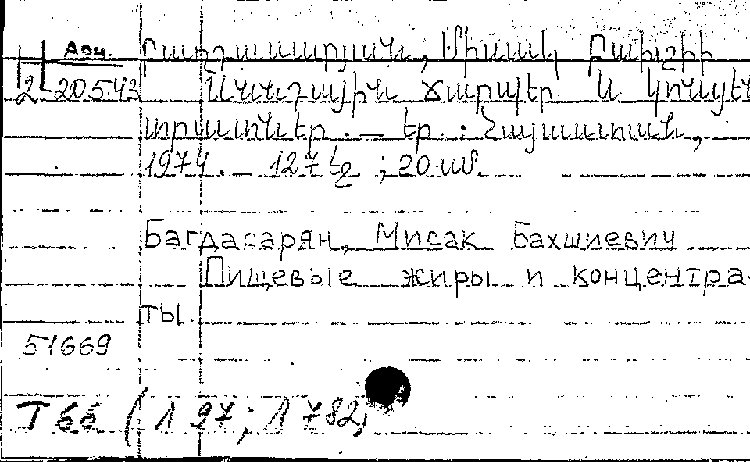 Բաղդասարյան, Միսակ Բախշիի
2-20543 Սննդային ճարպեր և կոնցեն
տրատներ. — Եր. : Հայաստան,
1974. — 127 էջ ; 20 սմ.
Багдасарян, Мисак Бахшиевич
Пищевые жиры и концентра-
ты.
51669
Т 66 (Л 97; Л 782)